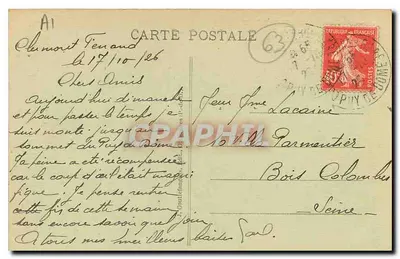 A1
CARTE POSTALE
63
Clermont Ferrand
le 17/10/26
Chers Amis
Aujourd'hui dimanche
et pour passer le temps je
suis monté jusqu'au
sommet du Puy de Dôme
Ma peine a été récompensée
car le coup d'œil était magni
fique. Je pense rentrer
fin de cette semaine
sans encore savoir quel jour
A tous mes meilleurs
Lacaini
Parmentier
Bois Colombes
Seine
REPUBLIQUE FRANÇAISE
POSTES
PUY DE DOME